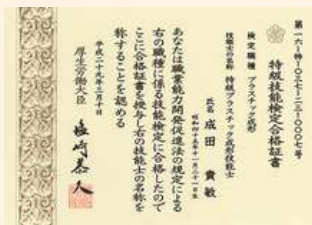 第一六-特-〇三七-二三-〇〇〇七号
特級技能検定合格証書
検定職種 プラスチック成形
技能士の名称 特級プラスチック成形技能士
氏名 成田 貴敏
昭和四十五年十一月二十一日生
あなたは職業能力開発促進法の規定による
右の職種に係る技能検定に合格したので
ここに合格証書を授与し右の技能士の名称を
称することを認める
平成二十九年三月十日
厚生労働大臣 塩崎恭久